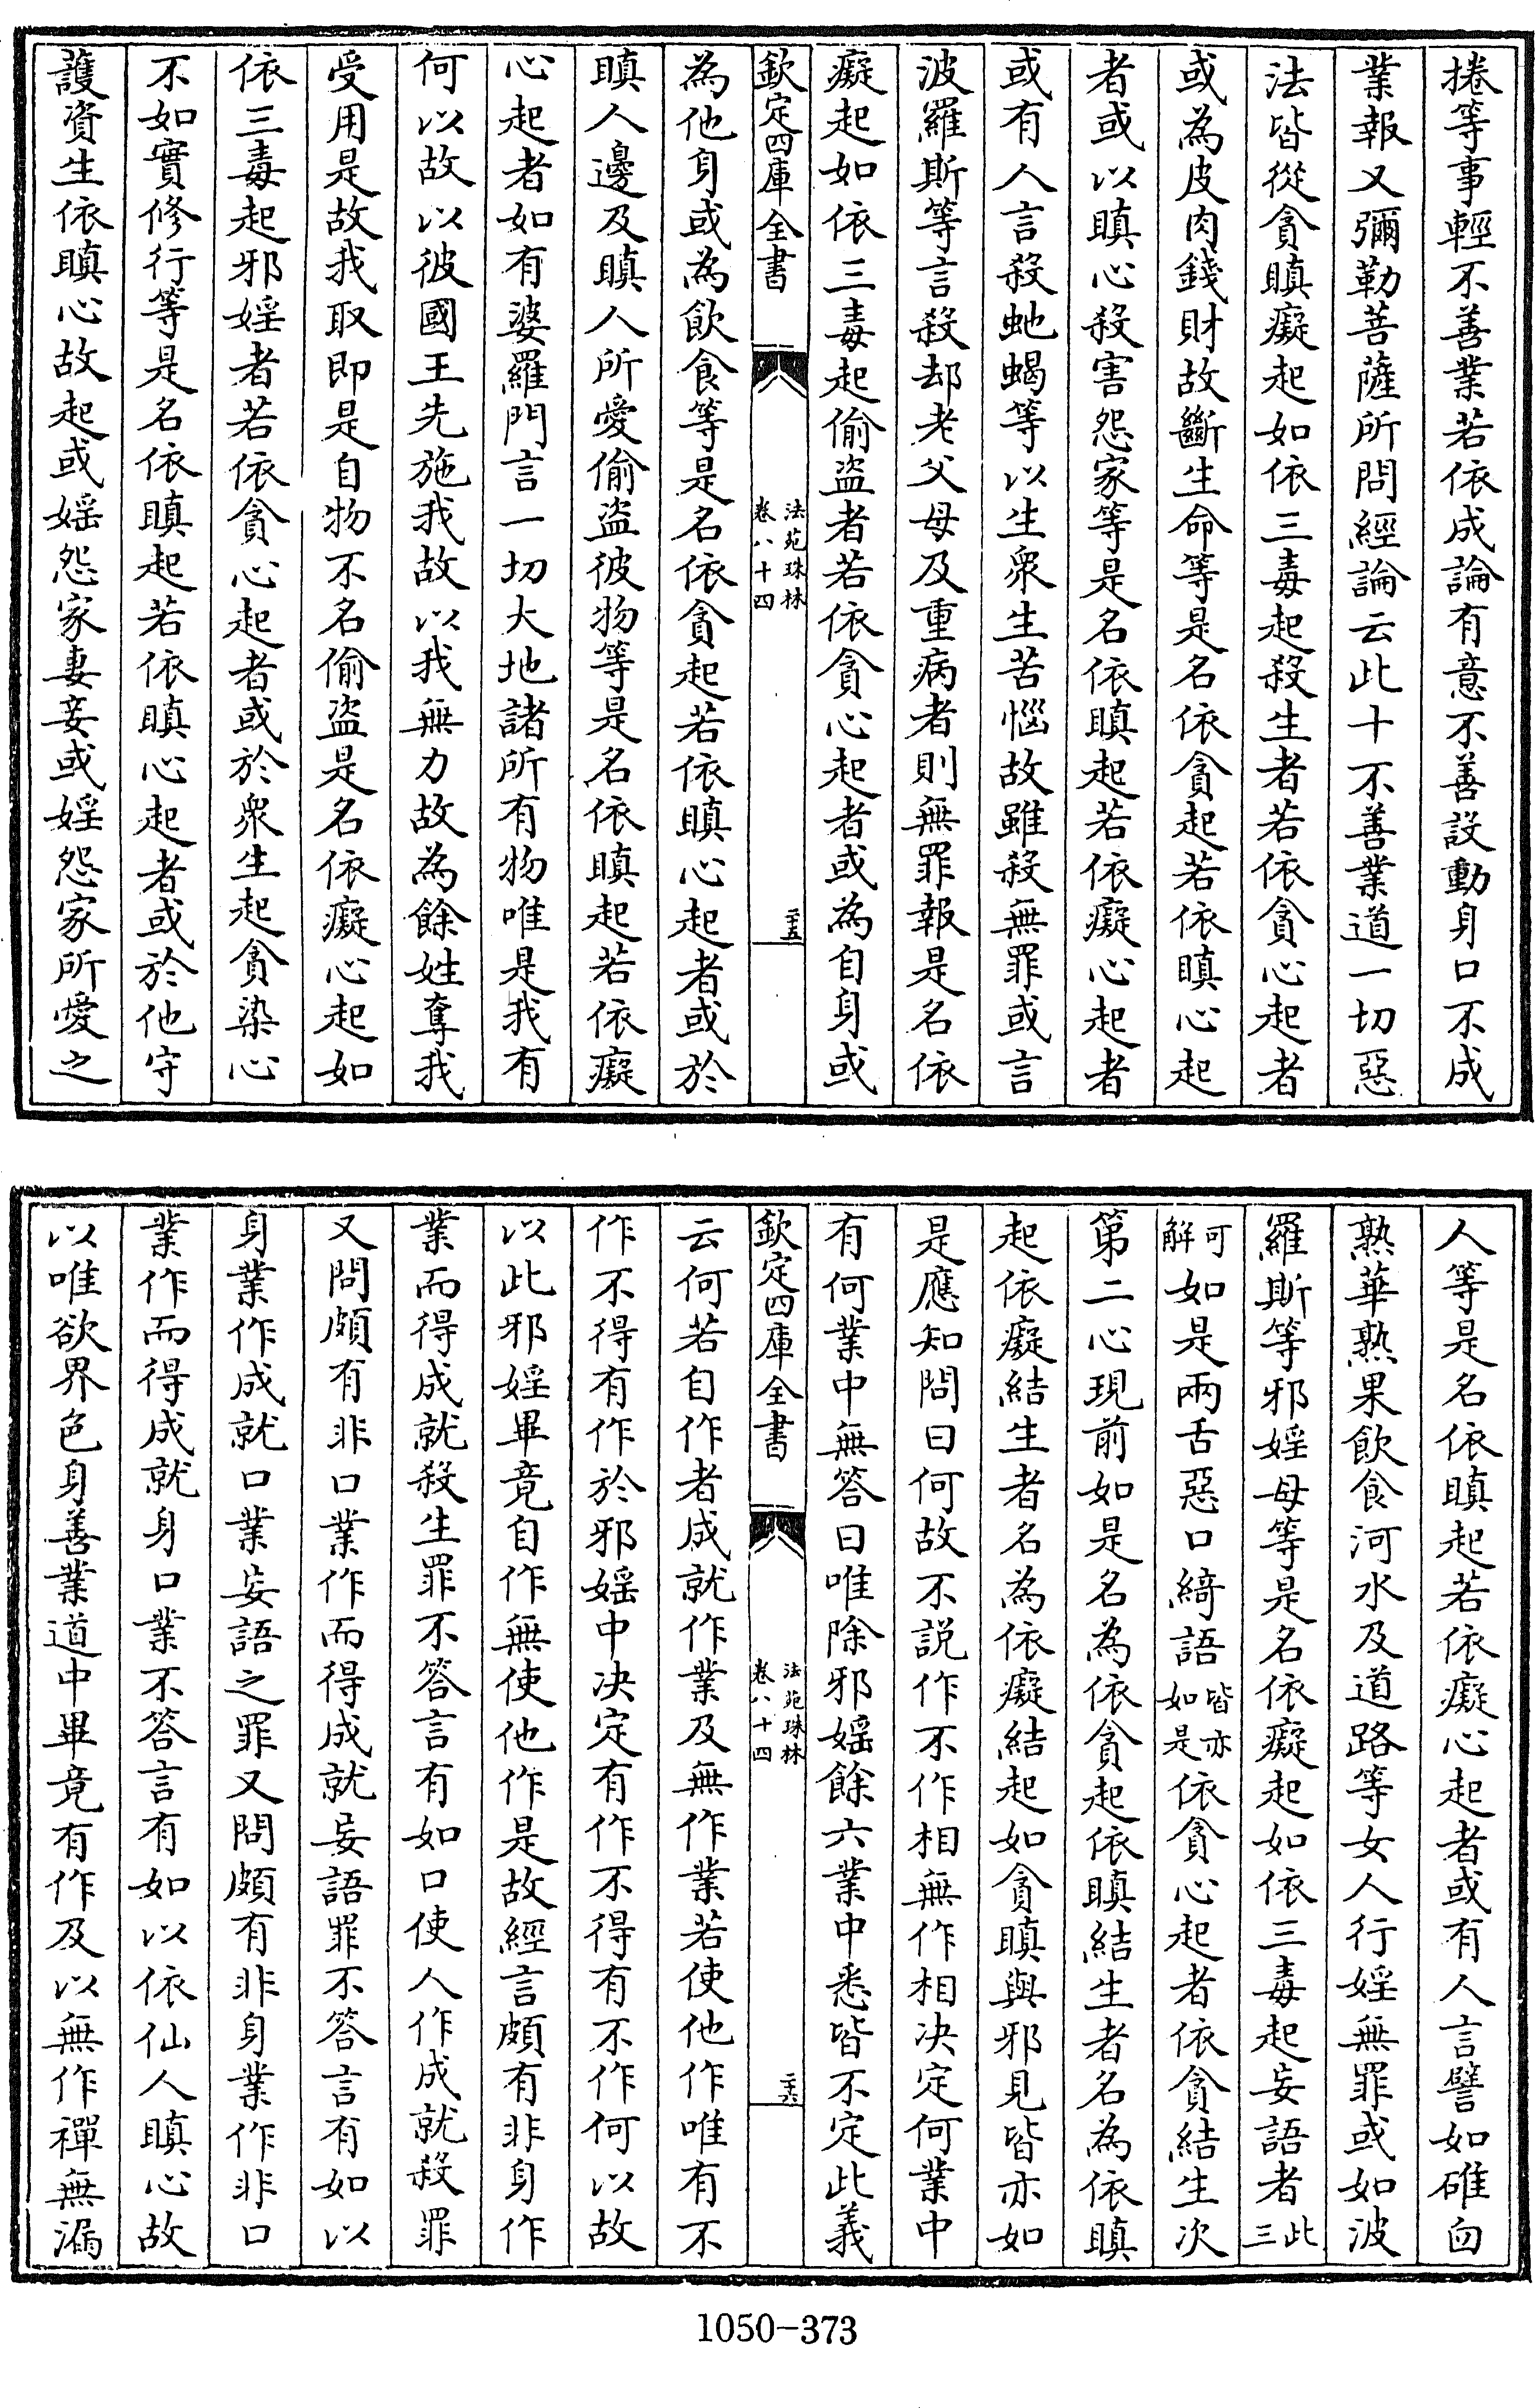 捲等事輕不善業若依成論有意不善設動身口不成
業報又彌勒菩薩所問經論云此十不善業道一切惡
法皆從貪瞋癡起如依三毒起殺生者若依貪心起者
或為皮肉錢財故斷生命等是名依貪起若依瞋心起
者或以瞋心殺害怨家等是名依瞋起若依癡心起者
或有人言殺虵蝎等以生衆生苦惱故雖殺無罪或言
波羅斯等言殺却老父母及重病者則無罪報是名依
癡起如依三毒起偷盜者若依貪心起者或為自身或
欽定四庫全書
法苑珠林
卷八十四
二十五
為他身或為飲食等是名依貪起若依瞋心起者或於
瞋人邊及瞋人所愛偷盜彼物等是名依瞋起若依癡
心起者如有婆羅門言一切大地諸所有物唯是我有
何以故以彼國王先施我故以我無力故為餘姓奪我
受用是故我取即是自物不名偷盜是名依癡心起如
依三毒起邪婬者若依貪心起者或於衆生起貪染心
不如實修行等是名依瞋起若依瞋心起者或於他守
護資生依瞋心故起或婬怨家妻妾或婬怨家所愛之
人等是名依瞋起若依癡心起者或有人言譬如碓臼
熟華熟果飲食河水及道路等女人行婬無罪或如波
羅斯等邪婬母等是名依癡起如依三毒起妄語者此三
可解如是兩舌惡口綺語皆亦如是依貪心起者依貪結生次
第二心現前如是名為依貪起依瞋結生者名為依瞋
起依癡結生者名為依癡結起如貪瞋與邪見皆亦如
是應知問曰何故不說作不作相無作相決定何業中
有何業中無答曰唯除邪婬餘六業中悉皆不定此義
欽定四庫全書
法苑珠林
卷八十四
二十六
云何若自作者成就作業及無作業若使他作唯有不
作不得有作於邪婬中决定有作不得有不作何以故
以此邪婬畢竟自作無使他作是故經言頗有非身作
業而得成就殺生罪不答言有如口使人作成就殺罪
又問頗有非口業作而得成就妄語罪不答言有如以
身業作成就口業妄語之罪又問頗有非身業作非口
業作而得成就身口業不答言有如以依仙人瞋心故
以唯欲界色身善業道中畢竟有作及以無作禪無漏
1050-373